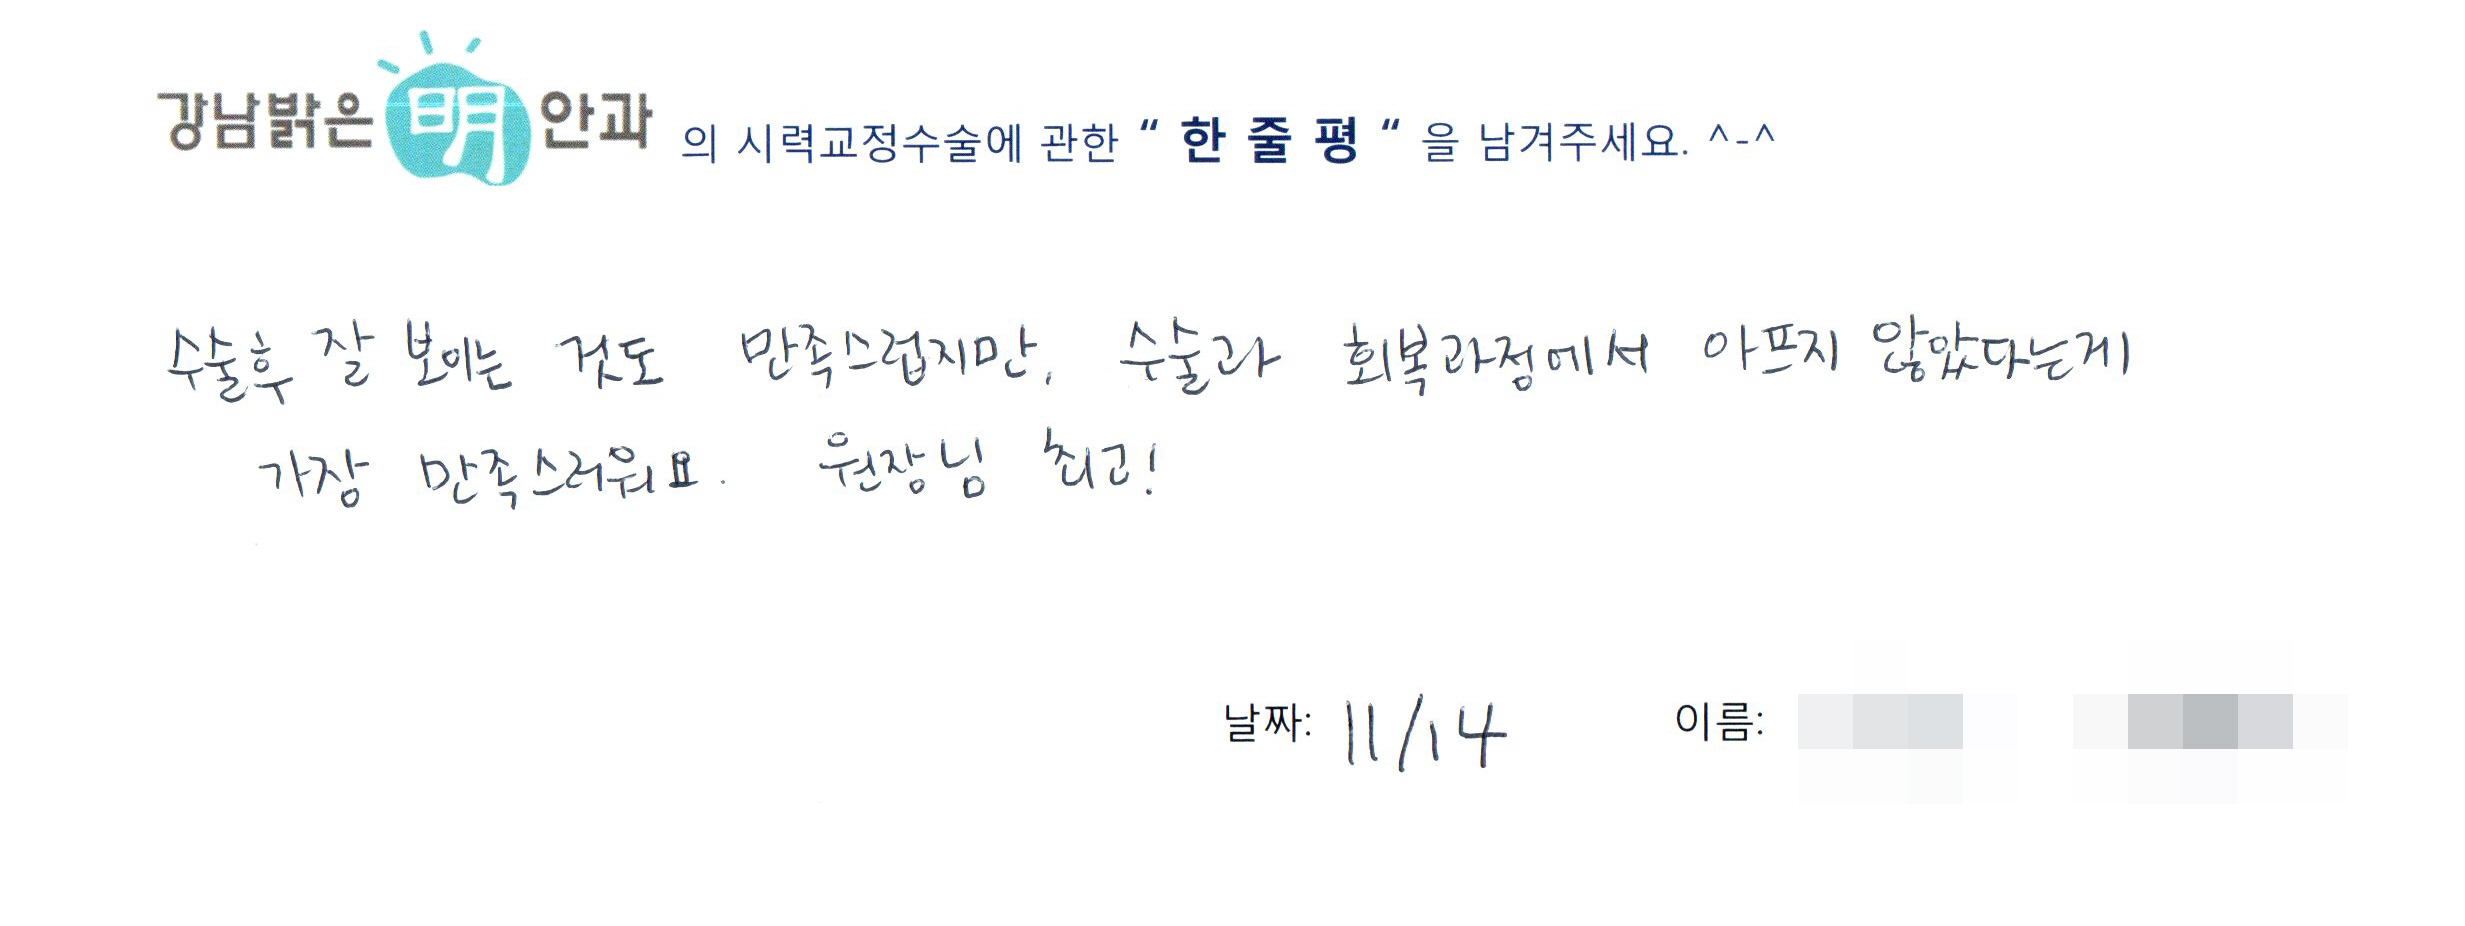 강남밝은明안과 의 시력교정수술에 관한 “ 한 줄 평 “ 을 남겨주세요. ^-^
수술후 잘 보이는 것도 만족스럽지만, 수술과 회복과정에서 아프지 않았다는게
가장 만족스러워요. 원장님 최고!
날짜: 11/14 이름: